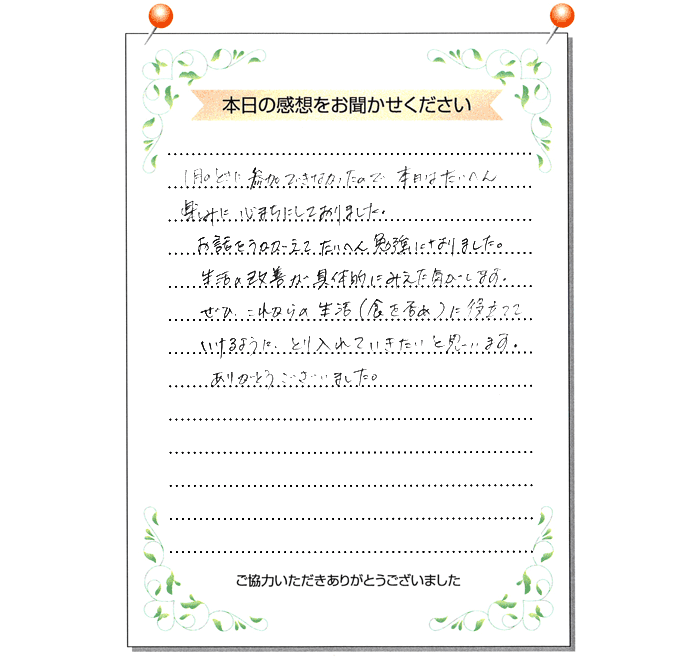 本日の感想をお聞かせください
1月のときに参加できなかったので 本日はたいへん
楽しみに 心まちにしておりました。
お話をうかがえて たいへん 勉強になりました。
生活の改善が 具体的にみえた気がします。
ぜひ、これからの 生活(食を含め)に 役立てて
いけるように、とり入れていきたいと思います。
ありがとうございました。
ご協力いただきありがとうございました